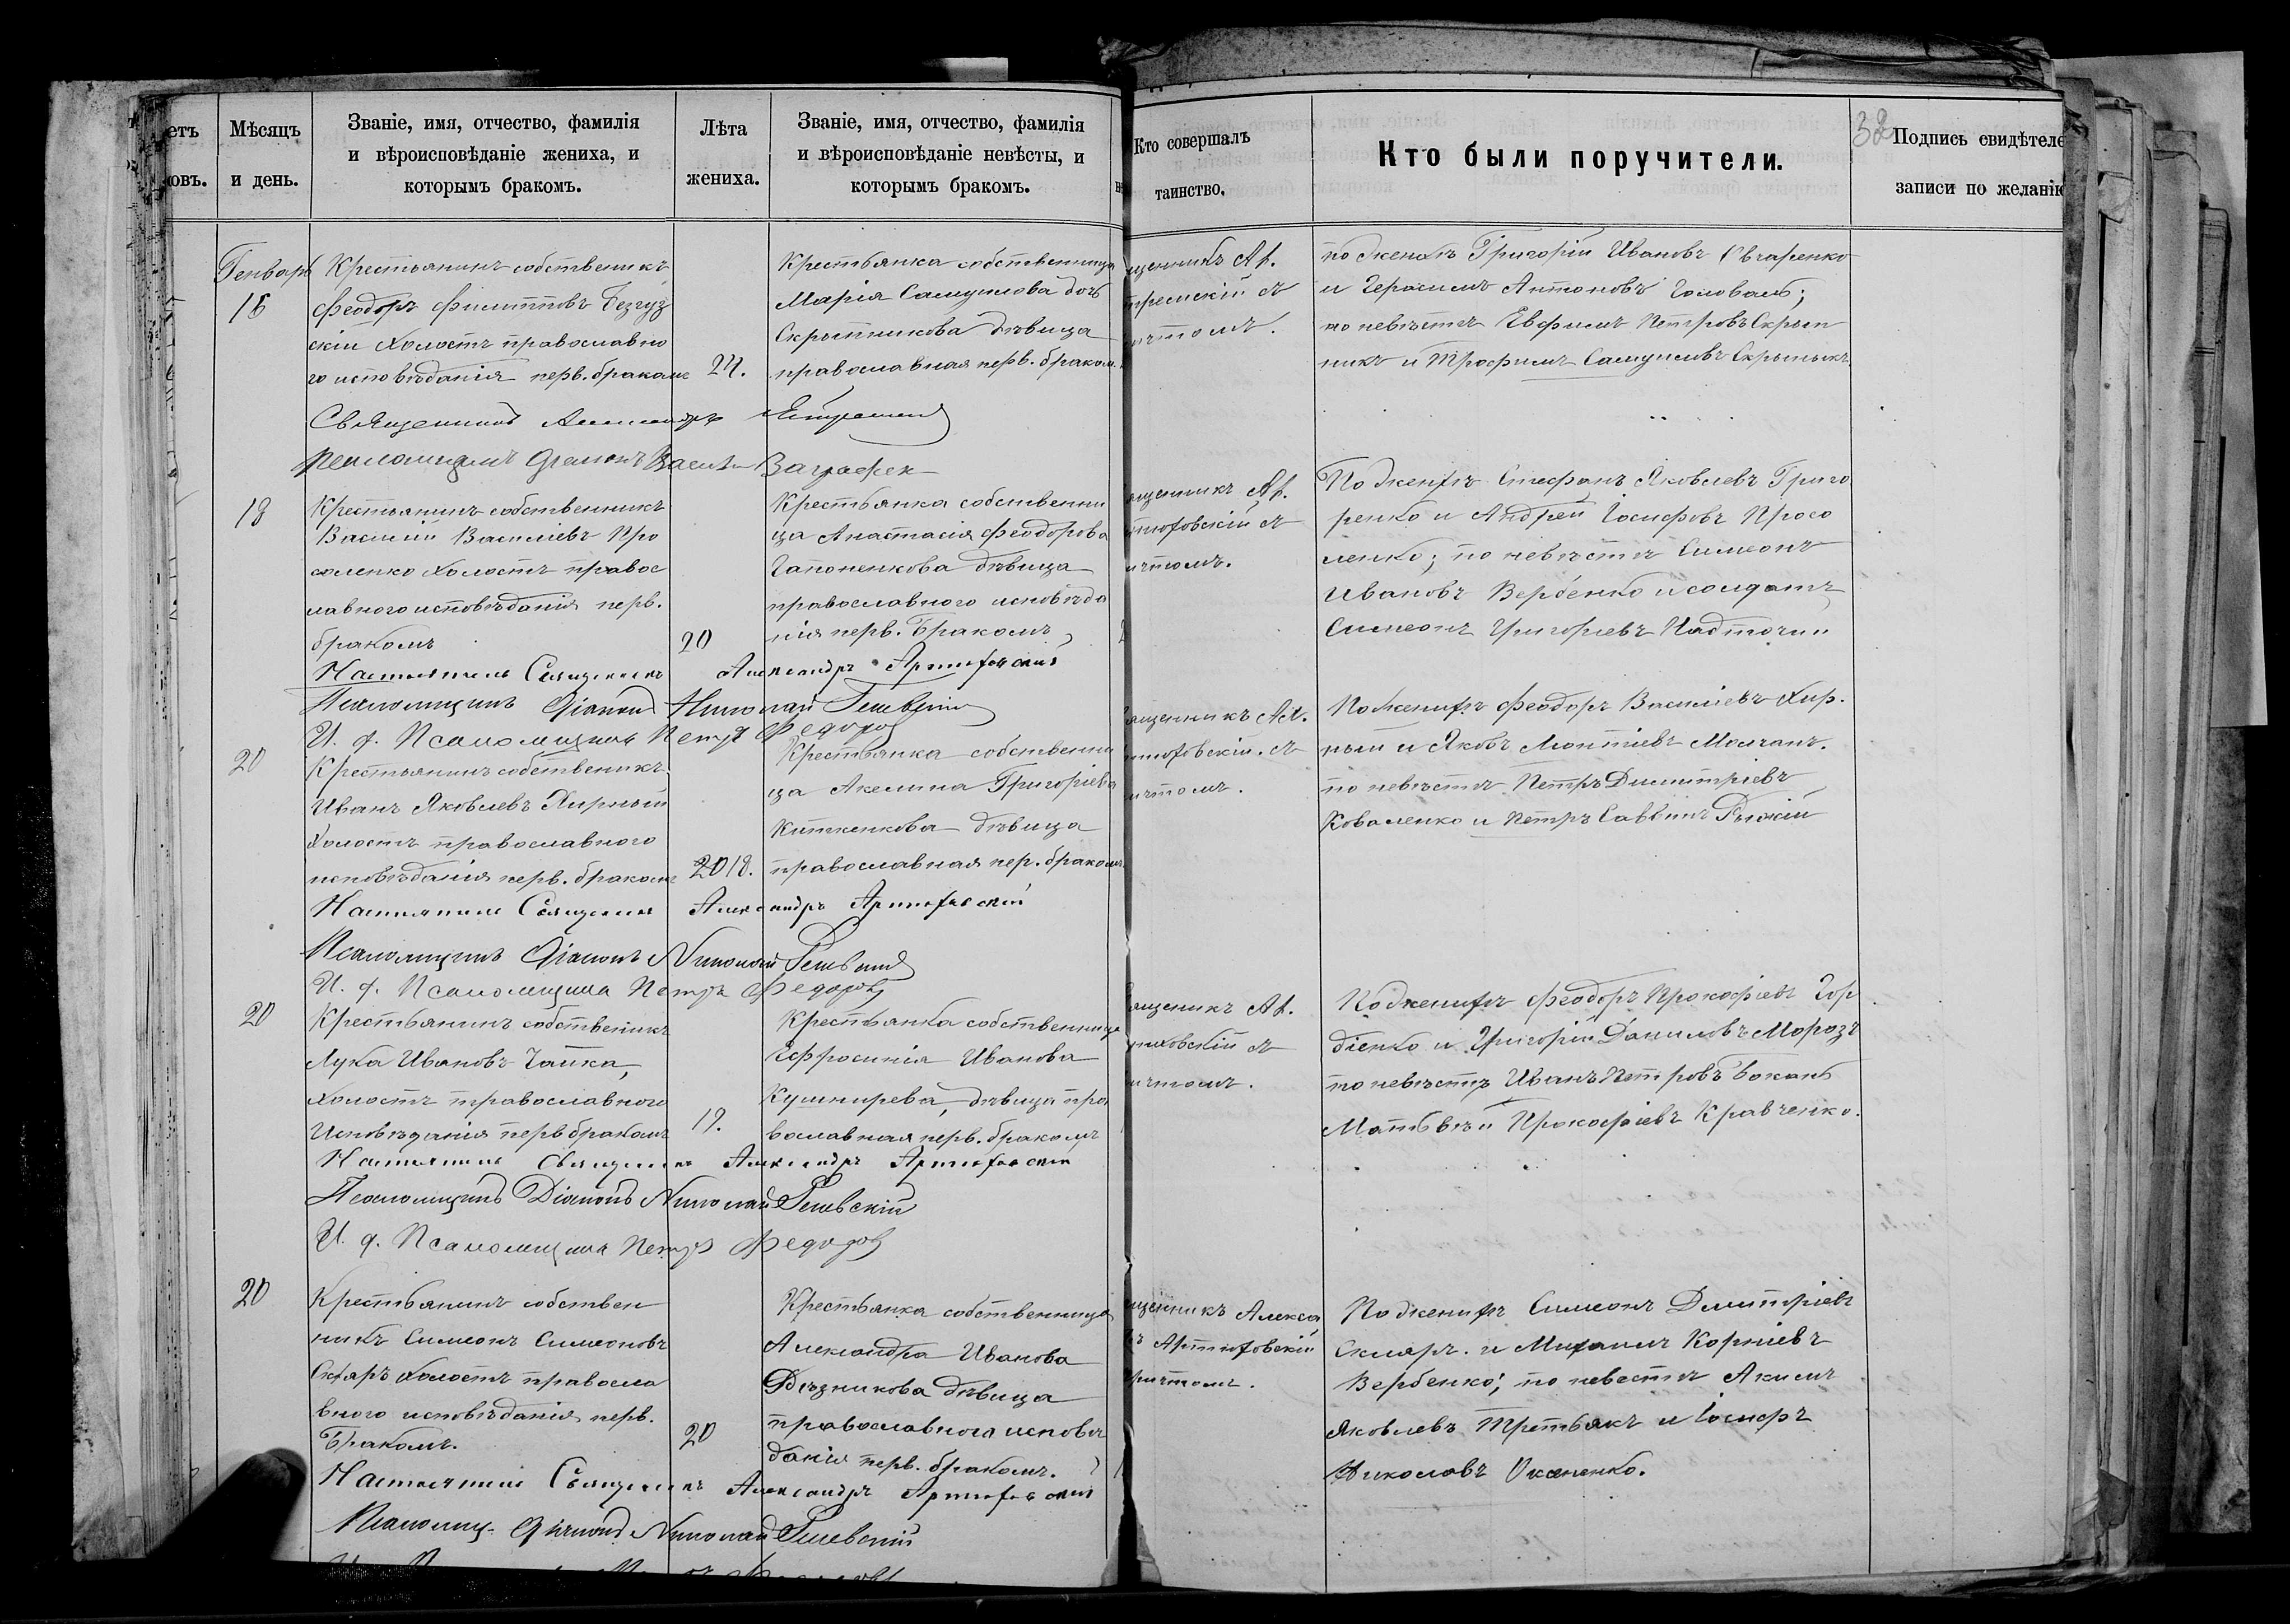 етъ
овъ.
Мѣсяцъ
и день.
Званіе, имя, отчество, фамилія
и вѣроисповѣданіе жениха, и
которымъ бракомъ.
Лѣта
жениха.
Званіе, имя, отчество, фамилія
и вѣроисповѣданіе невѣсты, и
которымъ бракомъ.
Генварь
16
Крестьянинъ собственикъ
Феодоръ Филипповъ Безгуз
скій холостъ православно
го исповѣданія перв. бракомъ
24.
Крестьянка собственница
Марія Самуилова дочь
Скрыпникова дѣвица
православная перв. браком.
Священникъ
18
Крестьянинъ собственникъ
Василій Василіевъ Про
соленко холостъ правос
лавного исповѣданія перв.
бракомъ
20
Крестьянка собственни
ца Анастасія Феодорова
Гапоненкова дѣвица
православного исповѣда
нія перв. бракомъ
Настоятель Священникъ Александръ Артюховскій
Псаломщикъ Діаконъ Николай
И. д. Псаломщика Петръ Федоров
20
Крестьянинъ собственикъ
Иванъ Яковлевъ Жирный
холостъ православного
исповѣданія перв. бракомъ
20 18.
Крестьянка собственни
ца Акелина Григоріева
дѣвица
православная пер. бракомъ
Настоятель Священник Александръ Артюховскій
Псаломщикъ Діаконъ Николай
И. д. Псаломщика Петръ Федоров
20
Крестьянинъ собственикъ
Лука Ивановъ Чайка,
холостъ православного
исповѣданія перв бракомъ
19.
Крестьянка собственница
Ефросинія Иванова
Кушнирева, дѣвица пра
вославная перв. бракомъ
Настоятель Священникъ Александръ Артюховскій
Псаломщикъ Діаконъ Николай
И. д. Псаломщика Петръ Федоров
20
Крестьянинъ собствен
никъ Симеонъ Симеоновъ
Скляръ холостъ правосла
вного исповѣданія перв.
бракомъ.
20
Крестьянка собственница
Александра Иванова
дѣвица
православного исповѣ
данія перв. бракомъ.
Настоятель Священникъ Александръ Артюховскій
Псаломщ. Діаконъ Николай
Кто совершалъ
таинство.
Кто были поручители.
32
Подпись свидѣтеле
записи по желанію
по женихѣ Григорій Ивановъ Овчаренко
и Герасимъ Антоновъ Головань;
по невѣстѣ Евфимъ Петровъ Скрып
никъ и Трофимъ Самуиловъ Скрыпникъ
щенникъ Ал.
тюховскій съ
ичтомъ.
По женихѣ Стефанъ Яковлевъ Григо
ренко и Андрей Іосифовъ Просо
ленко; по невѣстѣ Симеонъ
Ивановъ Вербенко и солдатъ
Симеонъ Григоріевъ Надточии
щенникъ Ал.
тюховскій. съ
ичтомъ.
По женихѣ Феодоръ Василіевъ Жир.
ный и Яковъ Молчанъ.
по невѣстѣ Петръ Димитріевъ
Коваленко и Петръ Саввинъ Рыжій
щеникъ Ал.
тюховскій съ
ичтомъ.
По женихѣ Феодоръ Прокофіевъ Гор
діенко и Григорій Даниловъ Морозъ
по невѣстѣ Иванъ Петровъ Бокань
Матвѣй Прокофіевъ Кравченко.
щенникъ Алекса
ъ Артюховскій
причтомъ.
По женихѣ Симеонъ Дмитріевъ
Скляръ. и Михаилъ Корніевъ
Вербенко; по невестѣ Акимъ
Яковлевъ Третьякъ и Іосифъ
Николовъ